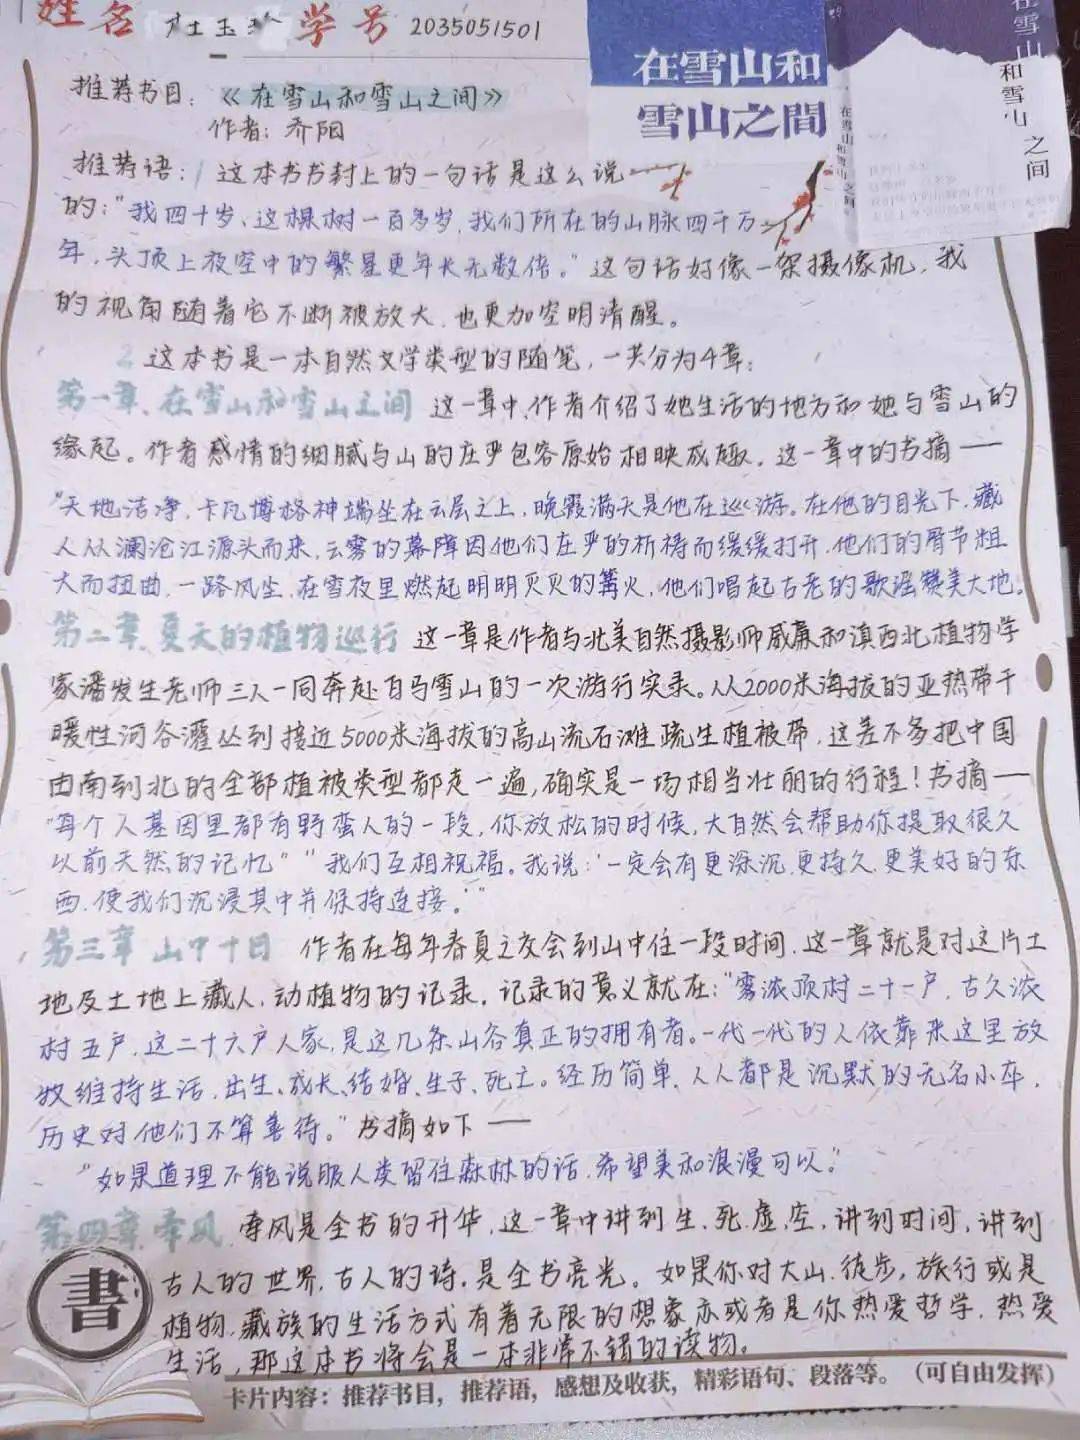 姓名 杜玉 学号 2035051501
在雪山和
雪山之間
在雪山
和雪山
之间
在雪山和雪山之间
推荐书目：《在雪山和雪山之间》
作者：乔阳
推荐语：1 这本书书封上的一句话是这么说
的："我四十岁、这棵树一百多岁，我们所在的山脉四千万
年，头顶上夜空中的繁星更年长无数倍。"这句话好像一架摄像机，我
的视角随着它不断被放大，也更加空明清醒。
2 这本书是一本自然文学类型的随笔，一共分为4章：
第一章、在雪山和雪山之间 这一章中，作者介绍了她生活的地方和她与雪山的
缘起。作者感情的细腻与山的庄严包容原始相映成趣。这一章中的书摘——
"天地洁净，卡瓦博格神端坐在云层之上，晚霞满天是他在巡游。在他的目光下，藏
人从澜沧江源头而来，云雾的幕障因他们庄严的祈祷而缓缓打开，他们的骨节粗
大而扭曲，一路风尘，在雪夜里燃起明明灭灭的篝火，他们唱起古老的歌谣赞美大地。
第二章、夏天的植物巡行 这一章是作者与北美自然摄影师威廉和滇西北植物学
家潘发生老师三人一同奔赴白马雪山的一次游行实录。从2000米海拔的亚热带干
暖性河谷灌丛到接近5000米海拔的高山流石滩疏生植被带，这差不多把中国
由南到北的全部植被类型都走一遍，确实是一场相当壮丽的行程！书摘——
"每个人基因里都有野蛮人的一段，你放松的时候，大自然会帮助你提取很久
以前天然的记忆""我们互相祝福。我说：'一定会有更深沉、更持久、更美好的东
西，使我们沉浸其中并保持连接。'"
第三章 山中十日 作者在每年春夏之交会到山中住一段时间，这一章就是对这片土
地及土地上藏人，动植物的记录。记录的意义就在："雾浓顶村二十一户，古久浓
村五户，这二十六户人家，是这几条山谷真正的拥有者。一代一代的人依靠来这里放
牧维持生活，出生、成长、结婚、生子、死亡。经历简单，人人都是沉默的无名小卒，
历史对他们不算善待。"书摘如下——
"如果道理不能说服人类留住森林的话，希望美和浪漫可以。"
第四章 牵风 牵风是全书的升华，这一章中讲到生，死，虚，空，讲到时间，讲到
古人的世界，古人的诗，是全书亮光。如果你对大山，徒步，旅行或是
植物，藏族的生活方式有着无限的想象亦或者是你热爱哲学，热爱
生活，那这本书将会是一本非常不错的读物。
書
卡片内容：推荐书目，推荐语，感想及收获，精彩语句、段落等。（可自由发挥）